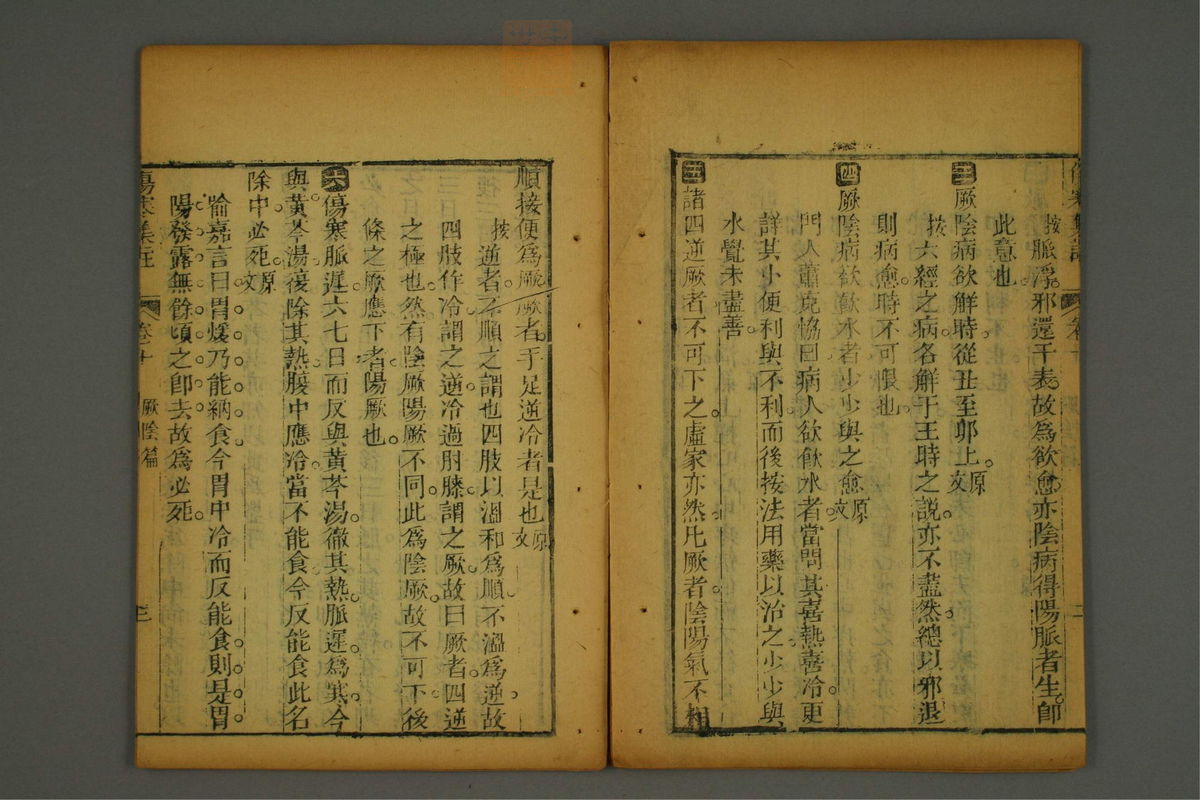 按脈浮邪還于表故為欲愈亦陰病得陽脈者生卽
此意也
三厥陰病欲解時從丑至卯上原文
按六經之病名解于王時之說亦不盡然總以邪退
則病愈時不可限也
四厥陰病欲飮水者少少與之愈原文
門人蕭克協曰病人欲飮水者當問其喜熱喜冷更
詳其小便利與不利而後按法用藥以治之少少與
水覺未盡善
五諸四逆厥者不可下之虛家亦然凡厥者陰陽氣不相
順接便爲厥厥者手足逆冷者是也原文
按逆者不順之謂也四肢以溫和爲順不溫爲逆故
四肢作冷謂之逆冷過肘膝謂之厥故曰厥者四逆
之極也然有陰厥陽厥不同此爲陰厥故不可下後
條之厥應下者陽厥也
六傷寒脈遲六七日而反與黃芩湯徹其熱脈遲爲寒今
與黃芩湯復除其熱腹中應冷當不能食今反能食此名
除中必死原文
喻嘉言曰胃煖乃能納食今胃中冷而反能食則是胃
陽發露無餘頃之卽去故爲必死
傷寒集註 卷十 厥陰篇 三